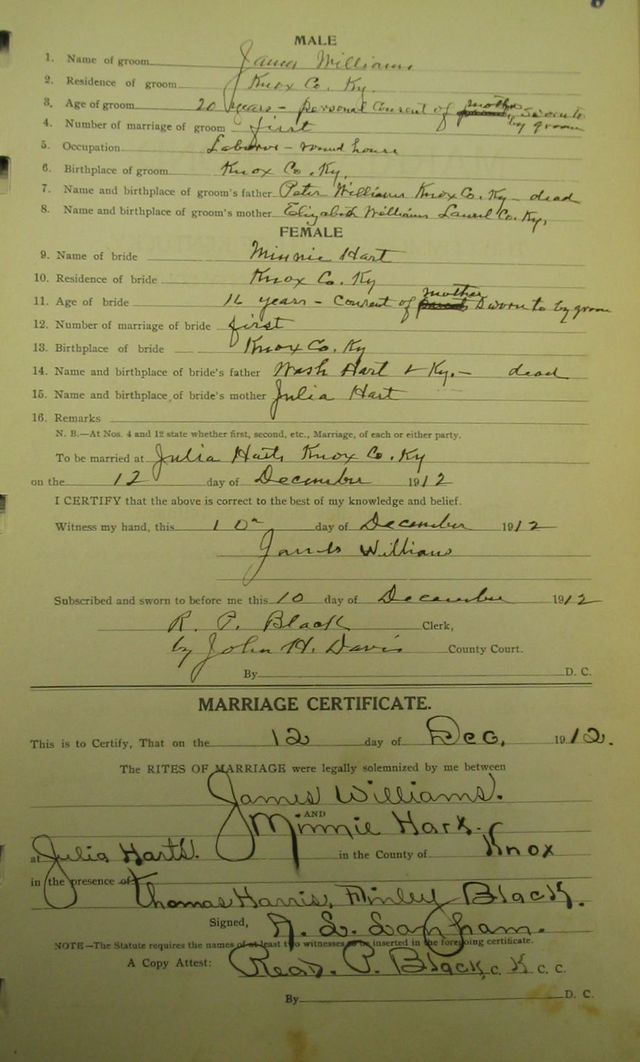 MALE
1. Name of groom James Williams
2. Residence of groom Knox Co. Ky.
3. Age of groom 20 years - personal consent of mother sworn to by groom
4. Number of marriage of groom first
5. Occupation Laborer - round house
6. Birthplace of groom Knox Co. Ky.
7. Name and birthplace of groom's father Peter Williams Knox Co. Ky - dead
8. Name and birthplace of groom's mother Elizabeth Williams Laurel Co. Ky.
FEMALE
9. Name of bride Minnie Hart
10. Residence of bride Knox Co. Ky
11. Age of bride 16 years - Consent of mother Sworn to by groom
12. Number of marriage of bride first
13. Birthplace of bride Knox Co. Ky
14. Name and birthplace of bride's father Wash Hart Ky. - dead
15. Name and birthplace of bride's mother Julia Hart
16. Remarks
N. B.—At Nos. 4 and 12 state whether first, second, etc., Marriage, of each or either party.
To be married at Julia Harts Knox Co. Ky
on the 12 day of December 1912
I CERTIFY that the above is correct to the best of my knowledge and belief.
Witness my hand, this 10 day of December 1912
James Williams
Subscribed and sworn to before me this 10 day of December 1912
R. P. Black Clerk,
by John H. Davis County Court.
By D. C.
MARRIAGE CERTIFICATE.
This is to Certify, That on the 12 day of Dec. 1912.
The RITES OF MARRIAGE were legally solemnized by me between
James Williams.
AND
Minnie Hark.
at Julia Harts. in the County of Knox
in the presence of Thomas Harris, Finley Black.
Signed, Langham.
NOTE—The Statute requires the names of at least two witnesses to be inserted in the foregoing certificate.
A Copy Attest: Read. P. Black, C. K C. C.
By D. C.